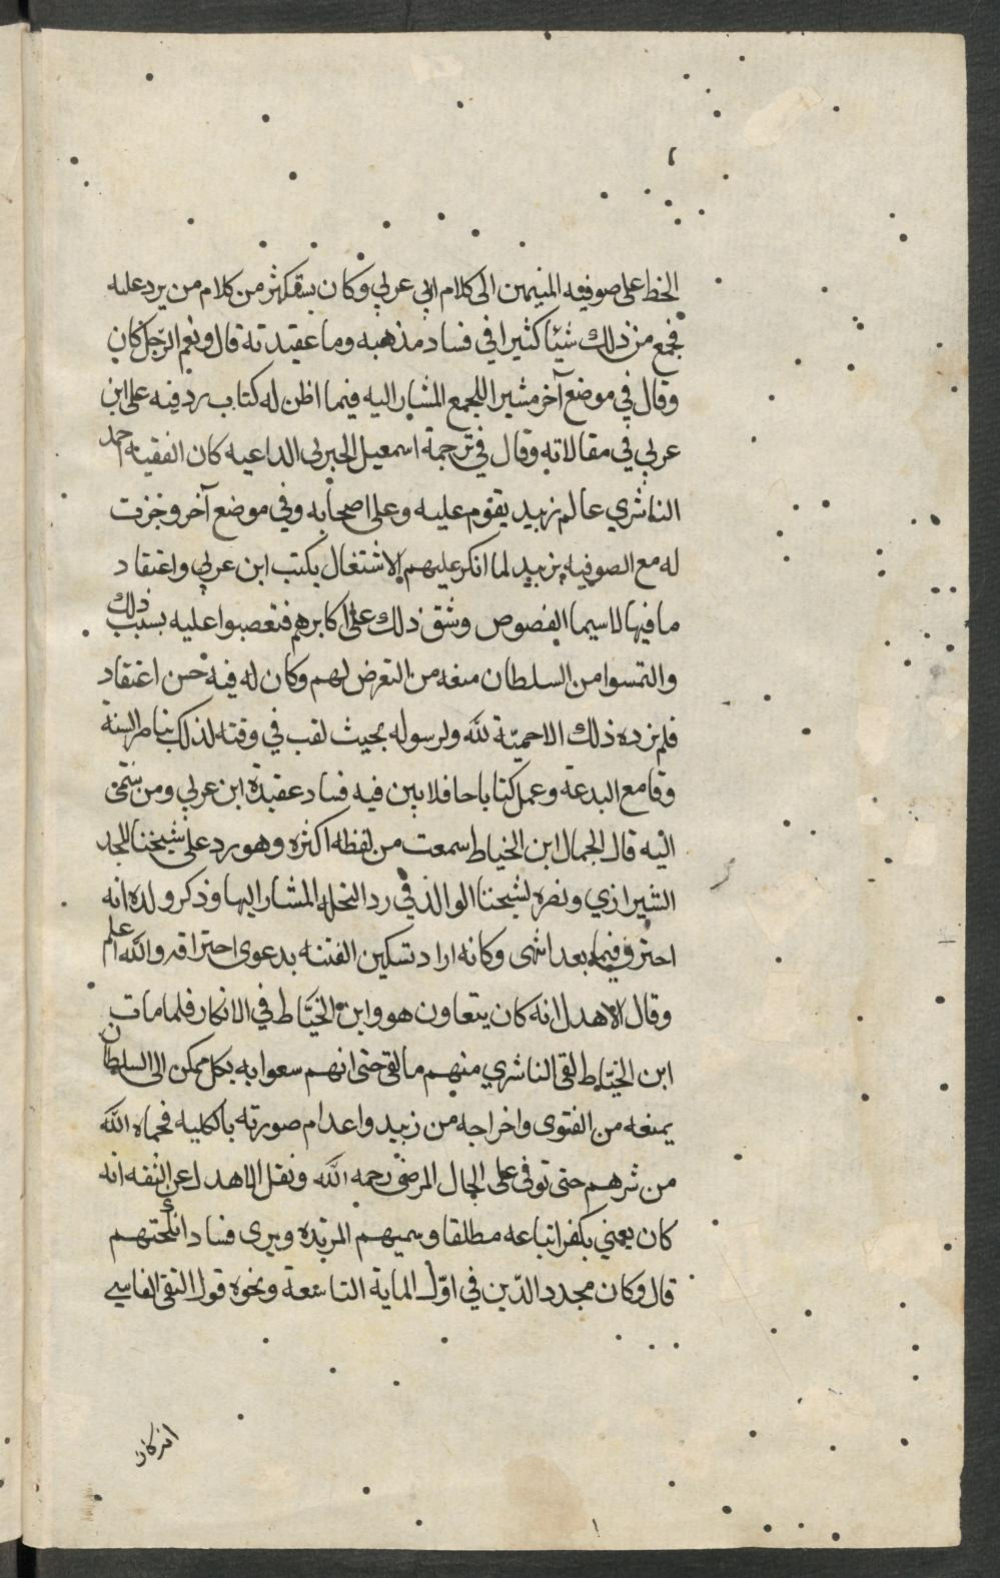 الخط على صوفيه المنتمين الى كلام ابن عربي وكان يستكثر من كلام من يرد عليه
فجمع من ذلك شيئا كثيرا في فساد مذهبه وما عقيدته قال ونعم الرجل كان
وقال في موضع آخر مشيرا للجمع المشار اليه فيما اظن له كتاب رد فيه على ابن
عربي في مقالاته وقال في ترجمة اسمعيل الجبرتي الداعيه كان الفقيه احمد
الناشري عالم زبيد يقوم عليه وعلى اصحابه وفي موضع آخر وجرت
له مع الصوفيه بزبيد لما انكر عليهم الاشتغال بكتب ابن عربي واعتقاد
ما فيها لاسيما الفصوص وشق ذلك على اكابرهم فتعصبوا عليه بسبب ذلك
والتمسوا من السلطان منعه من التعرض لهم وكان له فيه حسن اعتقاد
فلم نزده ذلك الاحميّة لله ولرسوله بحيث لقب في وقته لذلك بناصر السنة
وقامع البدعة وعمل كتابا حافلا بين فيه فساد عقيدة ابن عربي ومن ينتمي
اليه قال الجمال ابن الخياط سمعت من لفظه اكثره وهو رد على شيخنا المجد
الشيرازي ونصره لشيخنا الوالد في رد النحله المشار اليها وذكر ولده انه
احترق فيما بعد انتهى وكانه اراد تسكين الفتنه بدعوى احتراقه والله اعلم
وقال الاهدل انه كان يتعاون هو وابن الخيّاط في الانكار فلما مات
ابن الخيّاط لقى الناشري منهم ما لقى حتى انهم سعوا به بكل ممكن الى السلطان
يمنعه من الفتوى واخراجه من زبيد واعدام صورته بالكليه فحماه الله
من شرهم حتى توفى على الحال المرضى رحمه الله ونقل الاهدل عن الثقه انه
كان يفتي بكفر اتباعه مطلقا ويسميهم المرتده ويرى فساد انكحتهم
قال وكان مجدد الدّين في اوّل الماية التاسعة ونحوه قول التقى الفاسي
انه كان